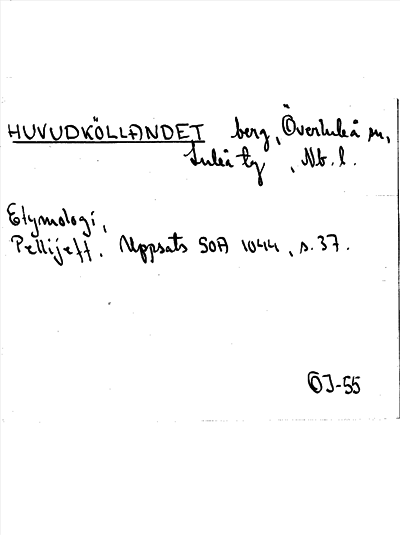 HUVUDKÖLLANDET berg, Överluleå sn,
Luleå tg, Nb. l.
Etymologi,
Pellijeff. Uppsats SOA 1044, s. 37.
ÖJ-55